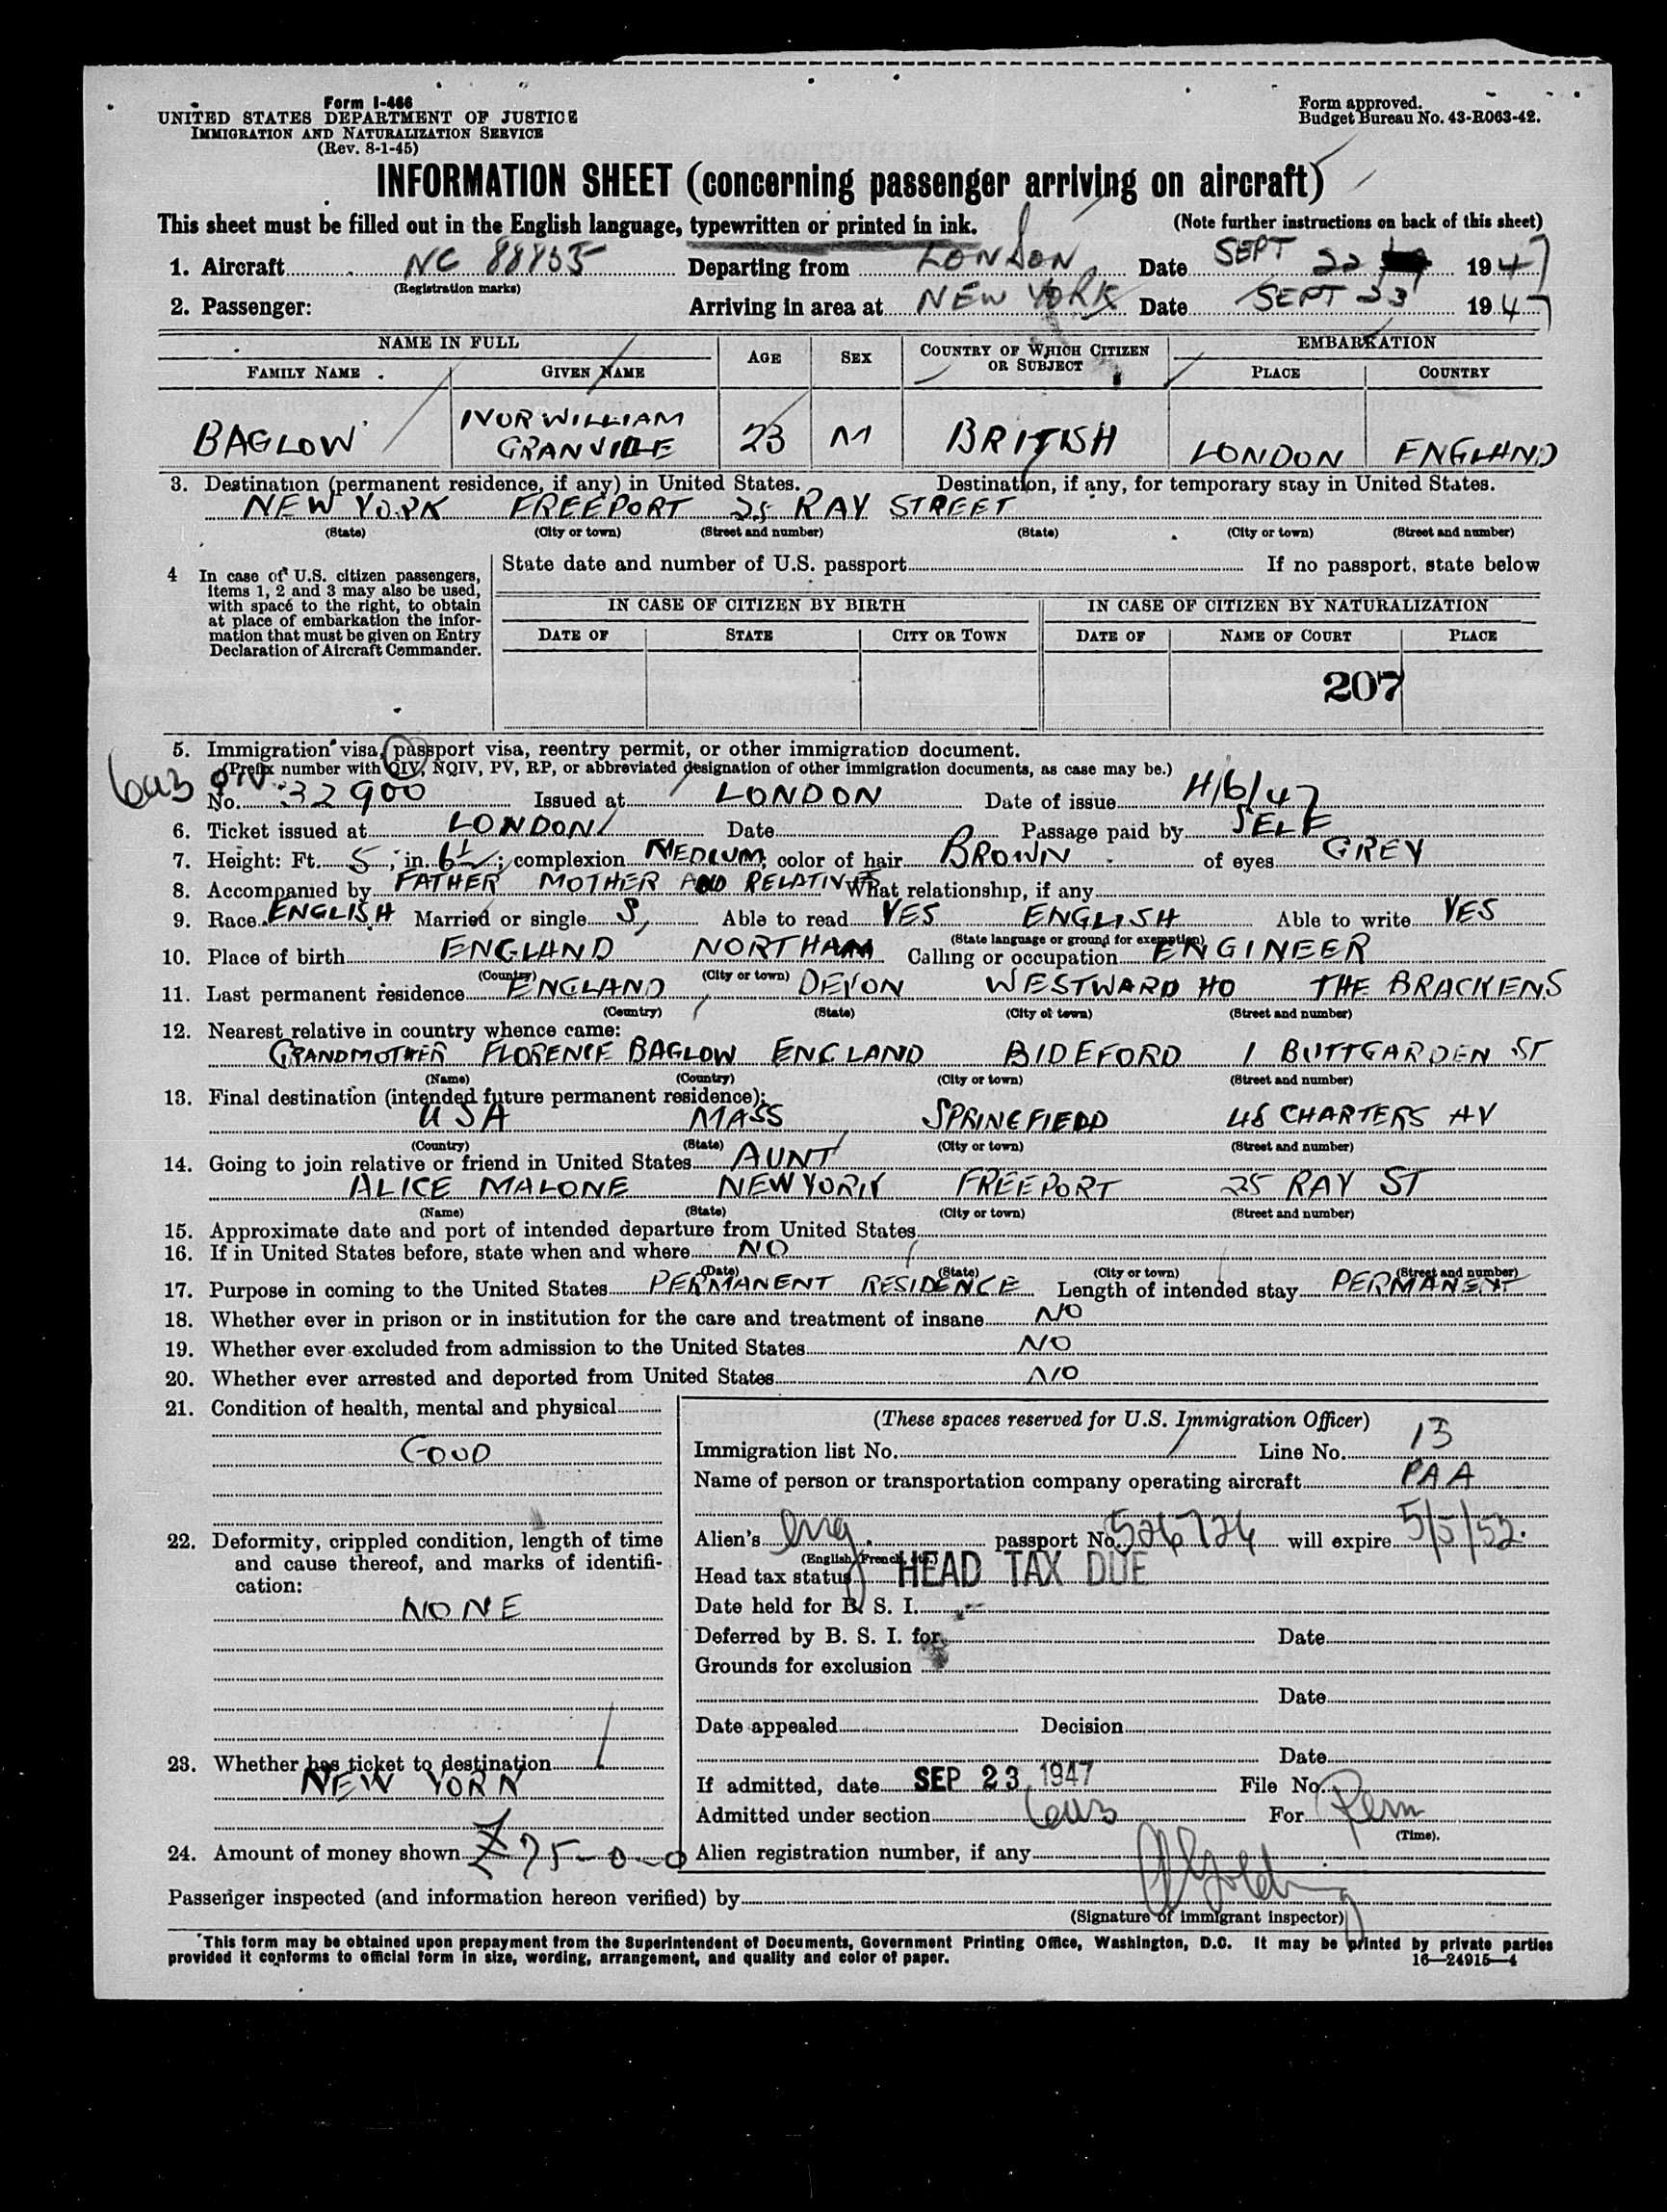 Form I-466
UNITED STATES DEPARTMENT OF JUSTICE
IMMIGRATION AND NATURALIZATION SERVICE
(Rev. 8-1-45)
Form approved.
Budget Bureau No. 43-R063-42.
INFORMATION SHEET (concerning passenger arriving on aircraft)
This sheet must be filled out in the English language, typewritten or printed in ink. (Note further instructions on back of this sheet)
1. Aircraft NC 88855 Departing from LONDON Date SEPT 22 1947
(Registration marks)
2. Passenger: Arriving in area at NEW YORK Date SEPT 23 1947
NAME IN FULL AGE SEX COUNTRY OF WHICH CITIZEN OR SUBJECT EMBARKATION
FAMILY NAME GIVEN NAME PLACE COUNTRY
BAGLOW IVOR WILLIAM GRANVILLE 23 M BRITISH LONDON ENGLAND
3. Destination (permanent residence, if any) in United States. Destination, if any, for temporary stay in United States.
NEW YORK FREEPORT 25 RAY STREET
(State) (City or town) (Street and number) (State) (City or town) (Street and number)
4 In case of U.S. citizen passengers, items 1, 2 and 3 may also be used, with space to the right, to obtain at place of embarkation the information that must be given on Entry Declaration of Aircraft Commander.
State date and number of U.S. passport If no passport, state below
IN CASE OF CITIZEN BY BIRTH IN CASE OF CITIZEN BY NATURALIZATION
DATE OF STATE CITY OR TOWN DATE OF NAME OF COURT PLACE
207
5. Immigration visa, passport visa, reentry permit, or other immigration document.
(Prefix number with QIV, NQIV, PV, RP, or abbreviated designation of other immigration documents, as case may be.)
6a3 QIV
No. 32900 Issued at LONDON Date of issue 4/6/47
6. Ticket issued at LONDON Date Passage paid by SELF
7. Height: Ft. 5; in. 6½; complexion MEDIUM; color of hair BROWN of eyes GREY
8. Accompanied by FATHER MOTHER AND RELATIVES What relationship, if any
9. Race ENGLISH Married or single S, Able to read YES ENGLISH Able to write YES
(State language or ground for exemption)
10. Place of birth ENGLAND NORTHAM Calling or occupation ENGINEER
(Country) (City or town)
11. Last permanent residence ENGLAND DEVON WESTWARD HO THE BRACKENS
(Country) (State) (City or town) (Street and number)
12. Nearest relative in country whence came:
GRANDMOTHER FLORENCE BAGLOW ENGLAND BIDEFORD 1 BUTTGARDEN ST
(Name) (Country) (City or town) (Street and number)
13. Final destination (intended future permanent residence):
USA MASS SPRINGFIELD 48 CHARTERS AV
(Country) (State) (City or town) (Street and number)
14. Going to join relative or friend in United States AUNT
ALICE MALONE NEW YORK FREEPORT 25 RAY ST
(Name) (State) (City or town) (Street and number)
15. Approximate date and port of intended departure from United States
16. If in United States before, state when and where NO
(Date) (State) (City or town) (Street and number)
17. Purpose in coming to the United States PERMANENT RESIDENCE Length of intended stay PERMANENT
18. Whether ever in prison or in institution for the care and treatment of insane NO
19. Whether ever excluded from admission to the United States NO
20. Whether ever arrested and deported from United States NO
21. Condition of health, mental and physical
GOOD
22. Deformity, crippled condition, length of time and cause thereof, and marks of identification:
NONE
23. Whether has ticket to destination
NEW YORK
24. Amount of money shown £75-0-0
(These spaces reserved for U.S. Immigration Officer)
Immigration list No. Line No. 13
Name of person or transportation company operating aircraft PAA
Alien's Eng passport No. 526724 will expire 5/5/52.
(English, French, etc.)
Head tax status HEAD TAX DUE
Date held for B. S. I.
Deferred by B. S. I. for Date
Grounds for exclusion
Date
Date appealed Decision
Date
If admitted, date SEP 23 1947 File No.
Admitted under section 6a3 For Perm
(Time).
Alien registration number, if any
Passenger inspected (and information hereon verified) by
(Signature of immigrant inspector)
This form may be obtained upon prepayment from the Superintendent of Documents, Government Printing Office, Washington, D.C. It may be printed by private parties
provided it conforms to official form in size, wording, arrangement, and quality and color of paper. 16—24915-4